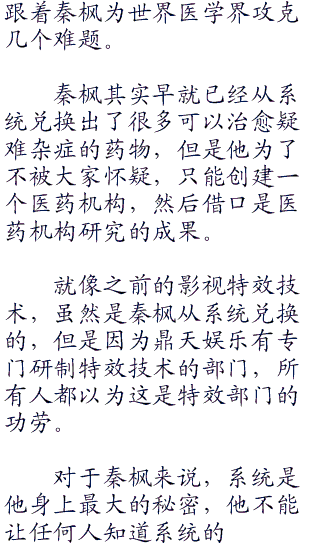 跟着秦枫为世界医学界攻克
几个难题。
秦枫其实早就已经从系
统兑换出了很多可以治愈疑
难杂症的药物，但是他为了
不被大家怀疑，只能创建一
个医药机构，然后借口是医
药机构研究的成果。
就像之前的影视特效技
术，虽然是秦枫从系统兑换
的，但是因为鼎天娱乐有专
门研制特效技术的部门，所
有人都以为这是特效部门的
功劳。
对于秦枫来说，系统是
他身上最大的秘密，他不能
让任何人知道系统的